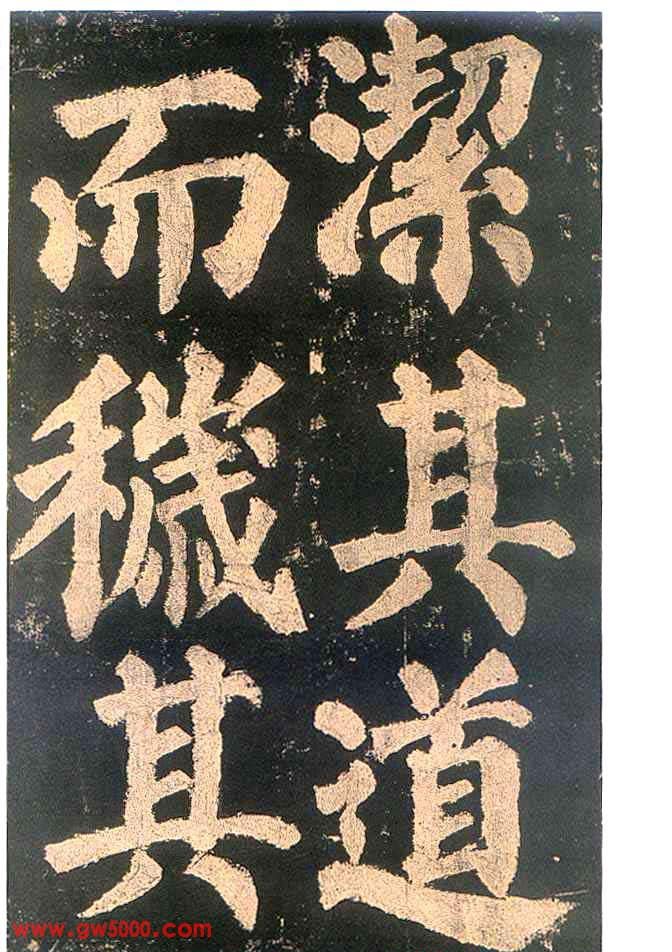 潔其道
而穢其
www.gw5000.com